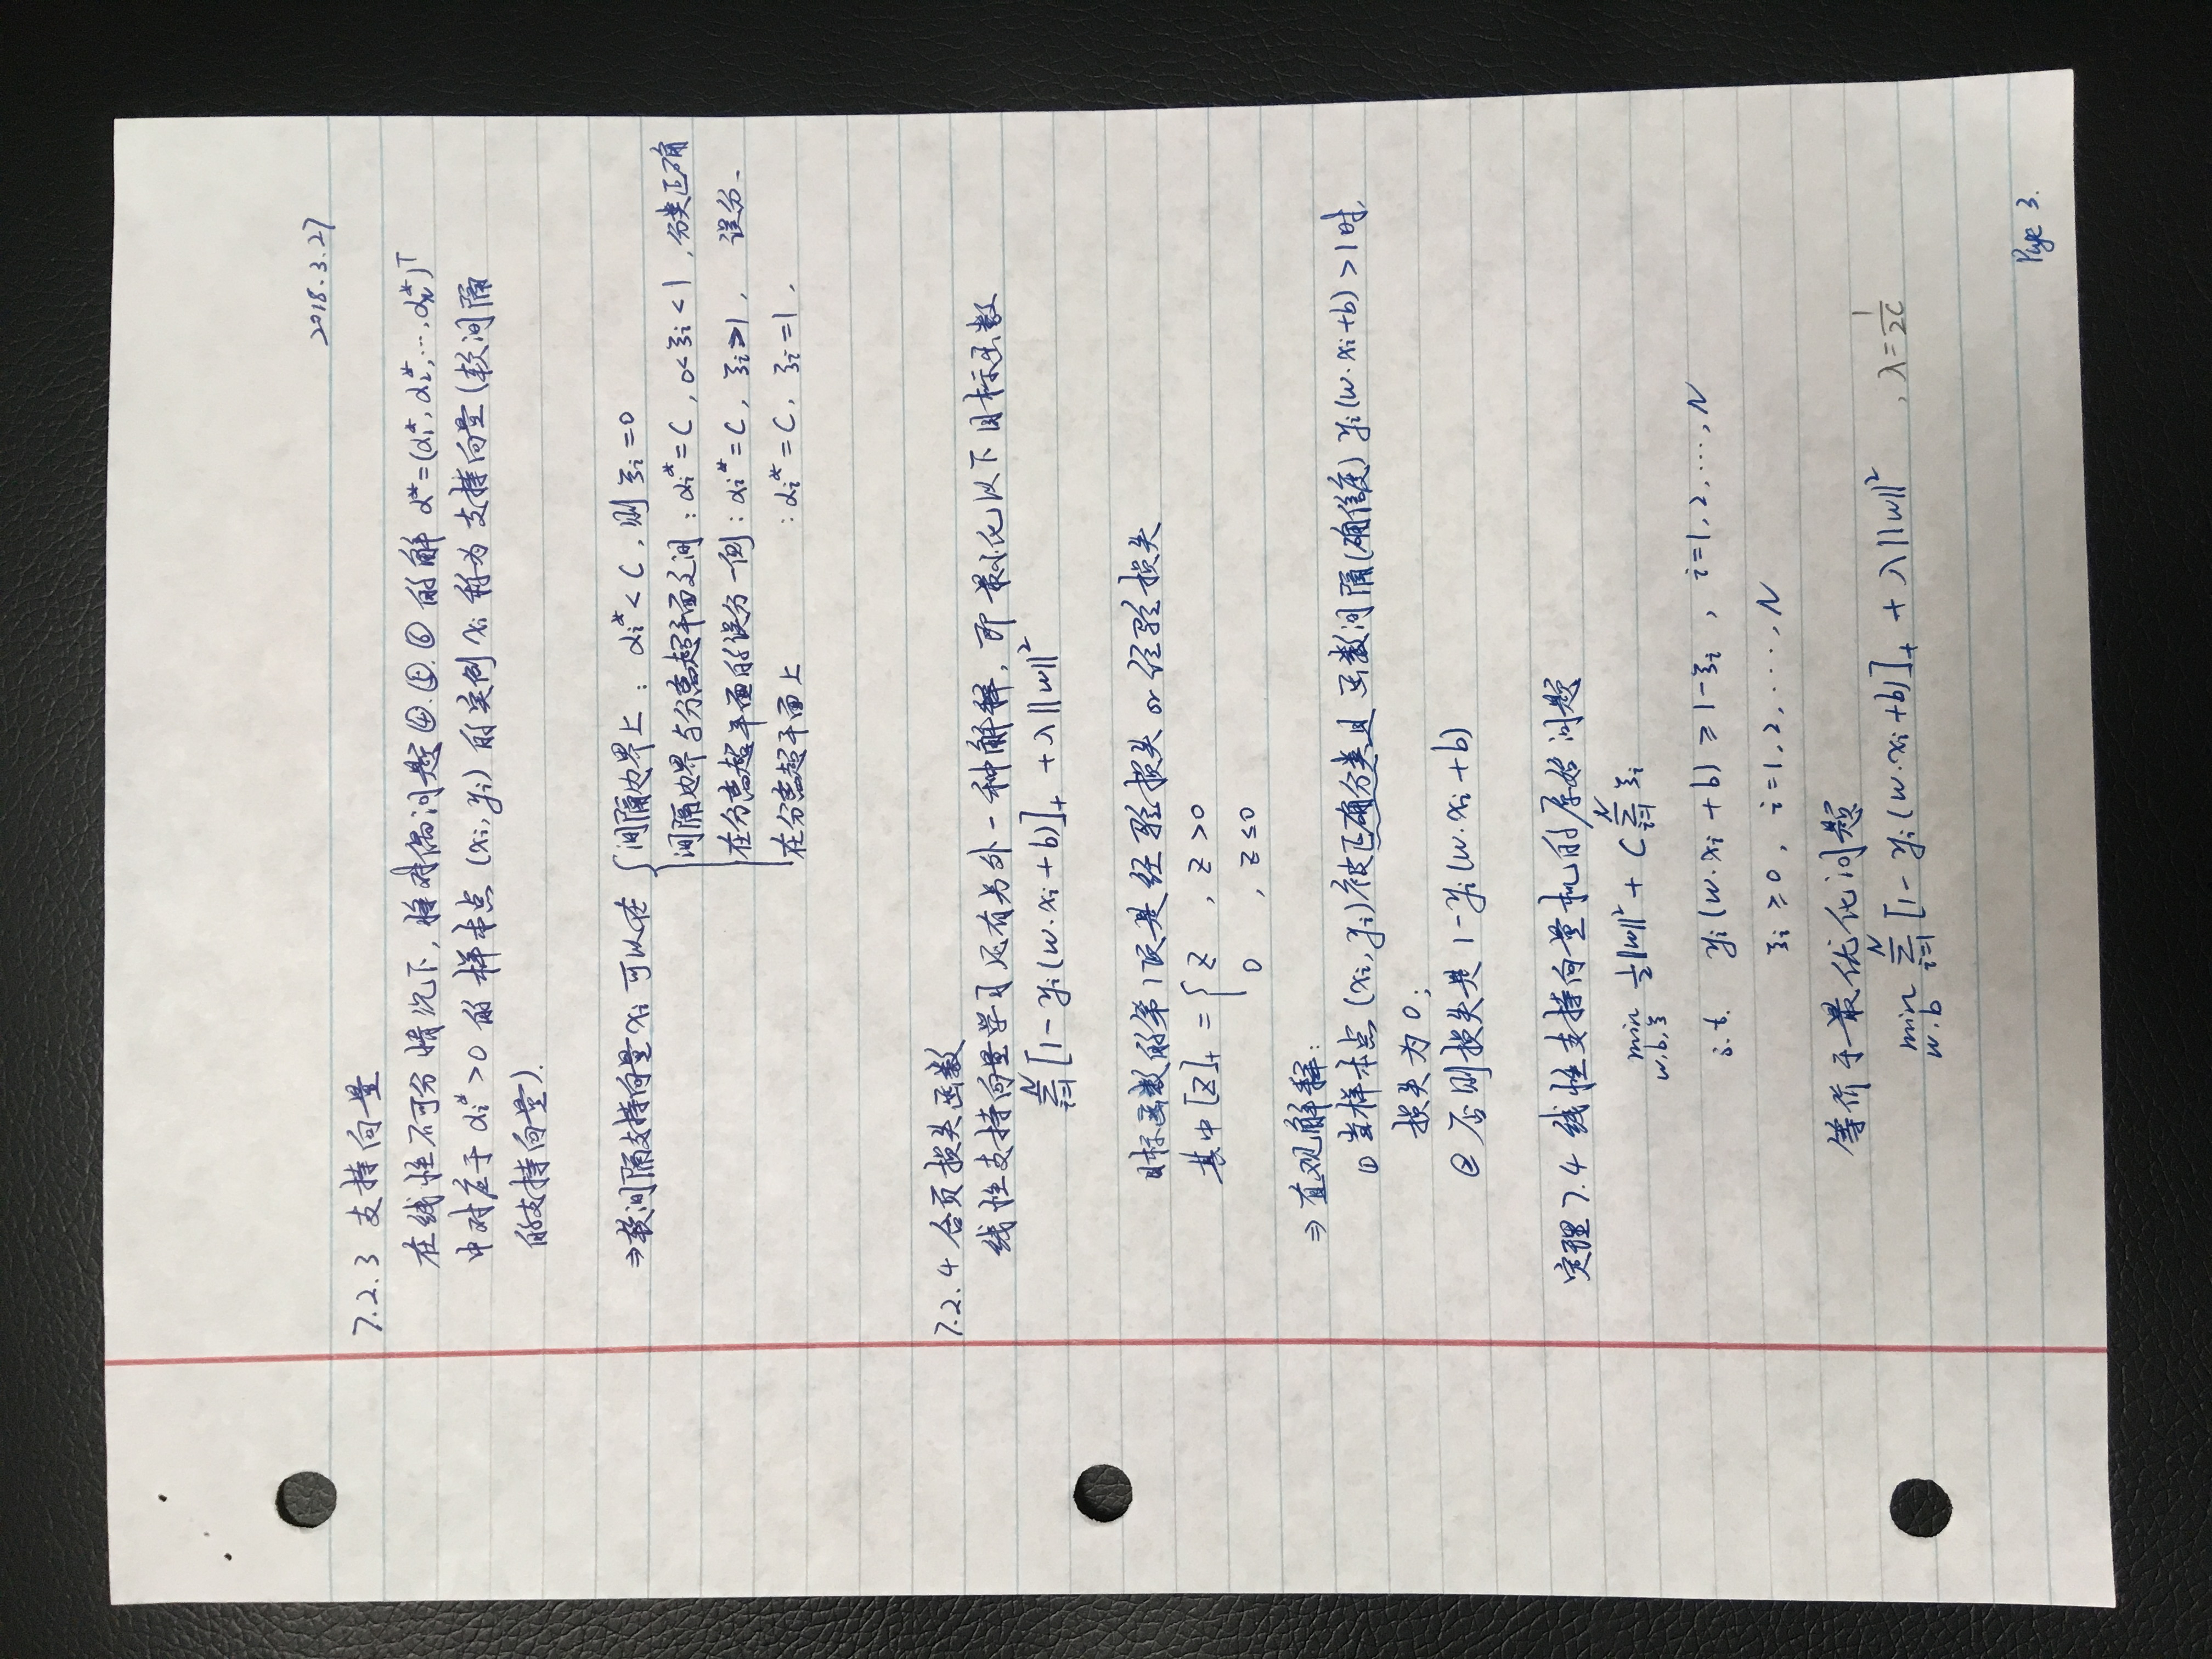 2018.3.27
7.2.3 支持向量
在线性不可分情况下，将对偶问题④⑤⑥的解 α*=(α₁*, α₂*, ..., α_N*)ᵀ
中对应于 αᵢ* > 0 的样本点 (xᵢ, yᵢ) 的实例 xᵢ 称为支持向量 (软间隔
的支持向量).
⇒ 软间隔支持向量 xᵢ 可以在 { 间隔边界上 : αᵢ* < C, 则 ξᵢ = 0
间隔边界与分离超平面之间 : αᵢ* = C, 0 < ξᵢ < 1, 分类正确
在分离超平面的误分一侧 : αᵢ* = C, ξᵢ > 1, 误分.
在分离超平面上 : αᵢ* = C, ξᵢ = 1.
7.2.4 合页损失函数
线性支持向量学习还有另外一种解释, 即最小化以下目标函数
∑_{i=1}^{N} [1 - yᵢ(w·xᵢ + b)]₊ + λ||w||²
目标函数的第1项是经验损失 or 经验损失
其中 [z]₊ = { z , z > 0
0 , z ≤ 0
⇒ 直观解释:
① 当样本点 (xᵢ, yᵢ) 被正确分类且函数间隔(确信度) yᵢ(w·xᵢ + b) > 1 时,
损失为 0;
② 否则损失是 1 - yᵢ(w·xᵢ + b)
定理 7.4 线性支持向量机的原始问题
min_{w,b,ξ} ½||w||² + C ∑_{i=1}^{N} ξᵢ
s.t. yᵢ(w·xᵢ + b) ≥ 1 - ξᵢ , i = 1, 2, ...., N
ξᵢ ≥ 0 , i = 1, 2, ...., N
等价于最优化问题
min_{w,b} ∑_{i=1}^{N} [1 - yᵢ(w·xᵢ + b)]₊ + λ||w||² , λ = 1/2C
Page 3.